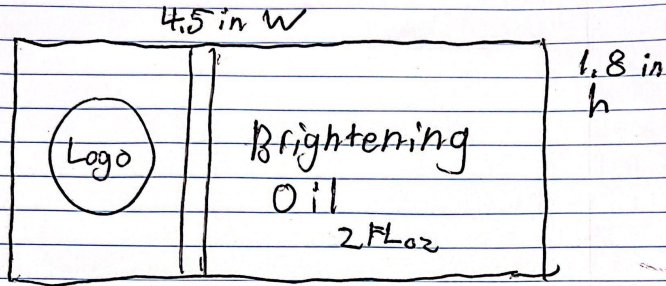 4.5 in W
1.8 in
h
Logo
Brightening
Oil
2 FL oz